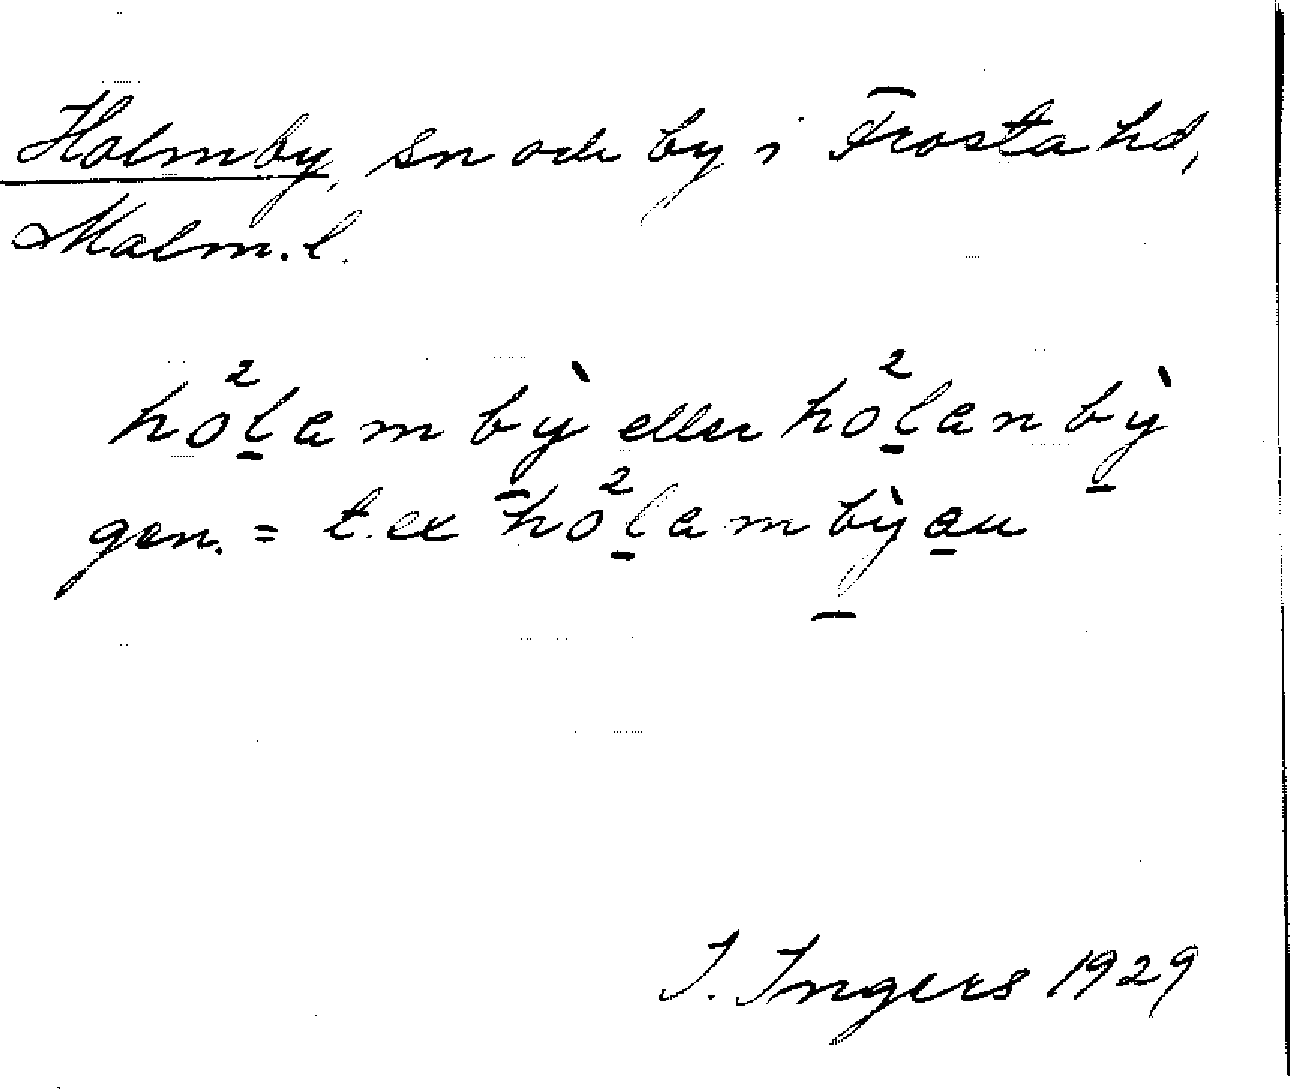 Holmby, sn och by i Frosta hd,
Malm.l.
hò²l̠am bỳ̠ eller hò²l̠an bỳ̠
gen. = t.ex hò²l̠am bỳ̠a̠u
I. Ingers 1929